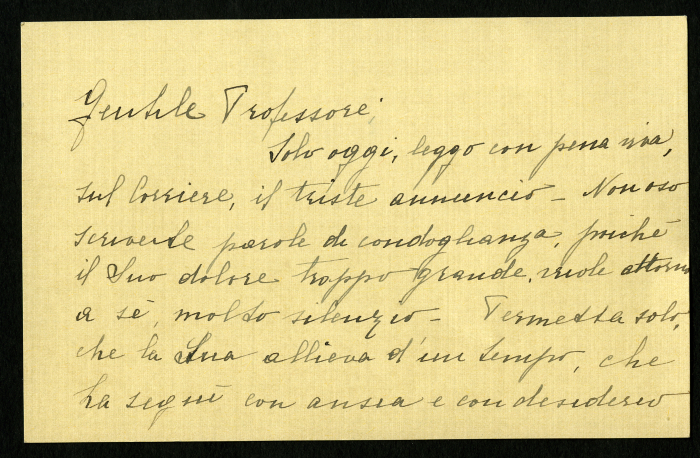 Gentile Professore,
Solo oggi, leggo con pena viva,
sul Corriere, il triste annuncio – Non oso
scriverLe parole di condoglianza, poichè
il Suo dolore troppo grande, vuole attorno
a sè, molto silenzio – Permetta solo,
che la Sua allieva d'un tempo, che
La seguì con ansia e con desiderio